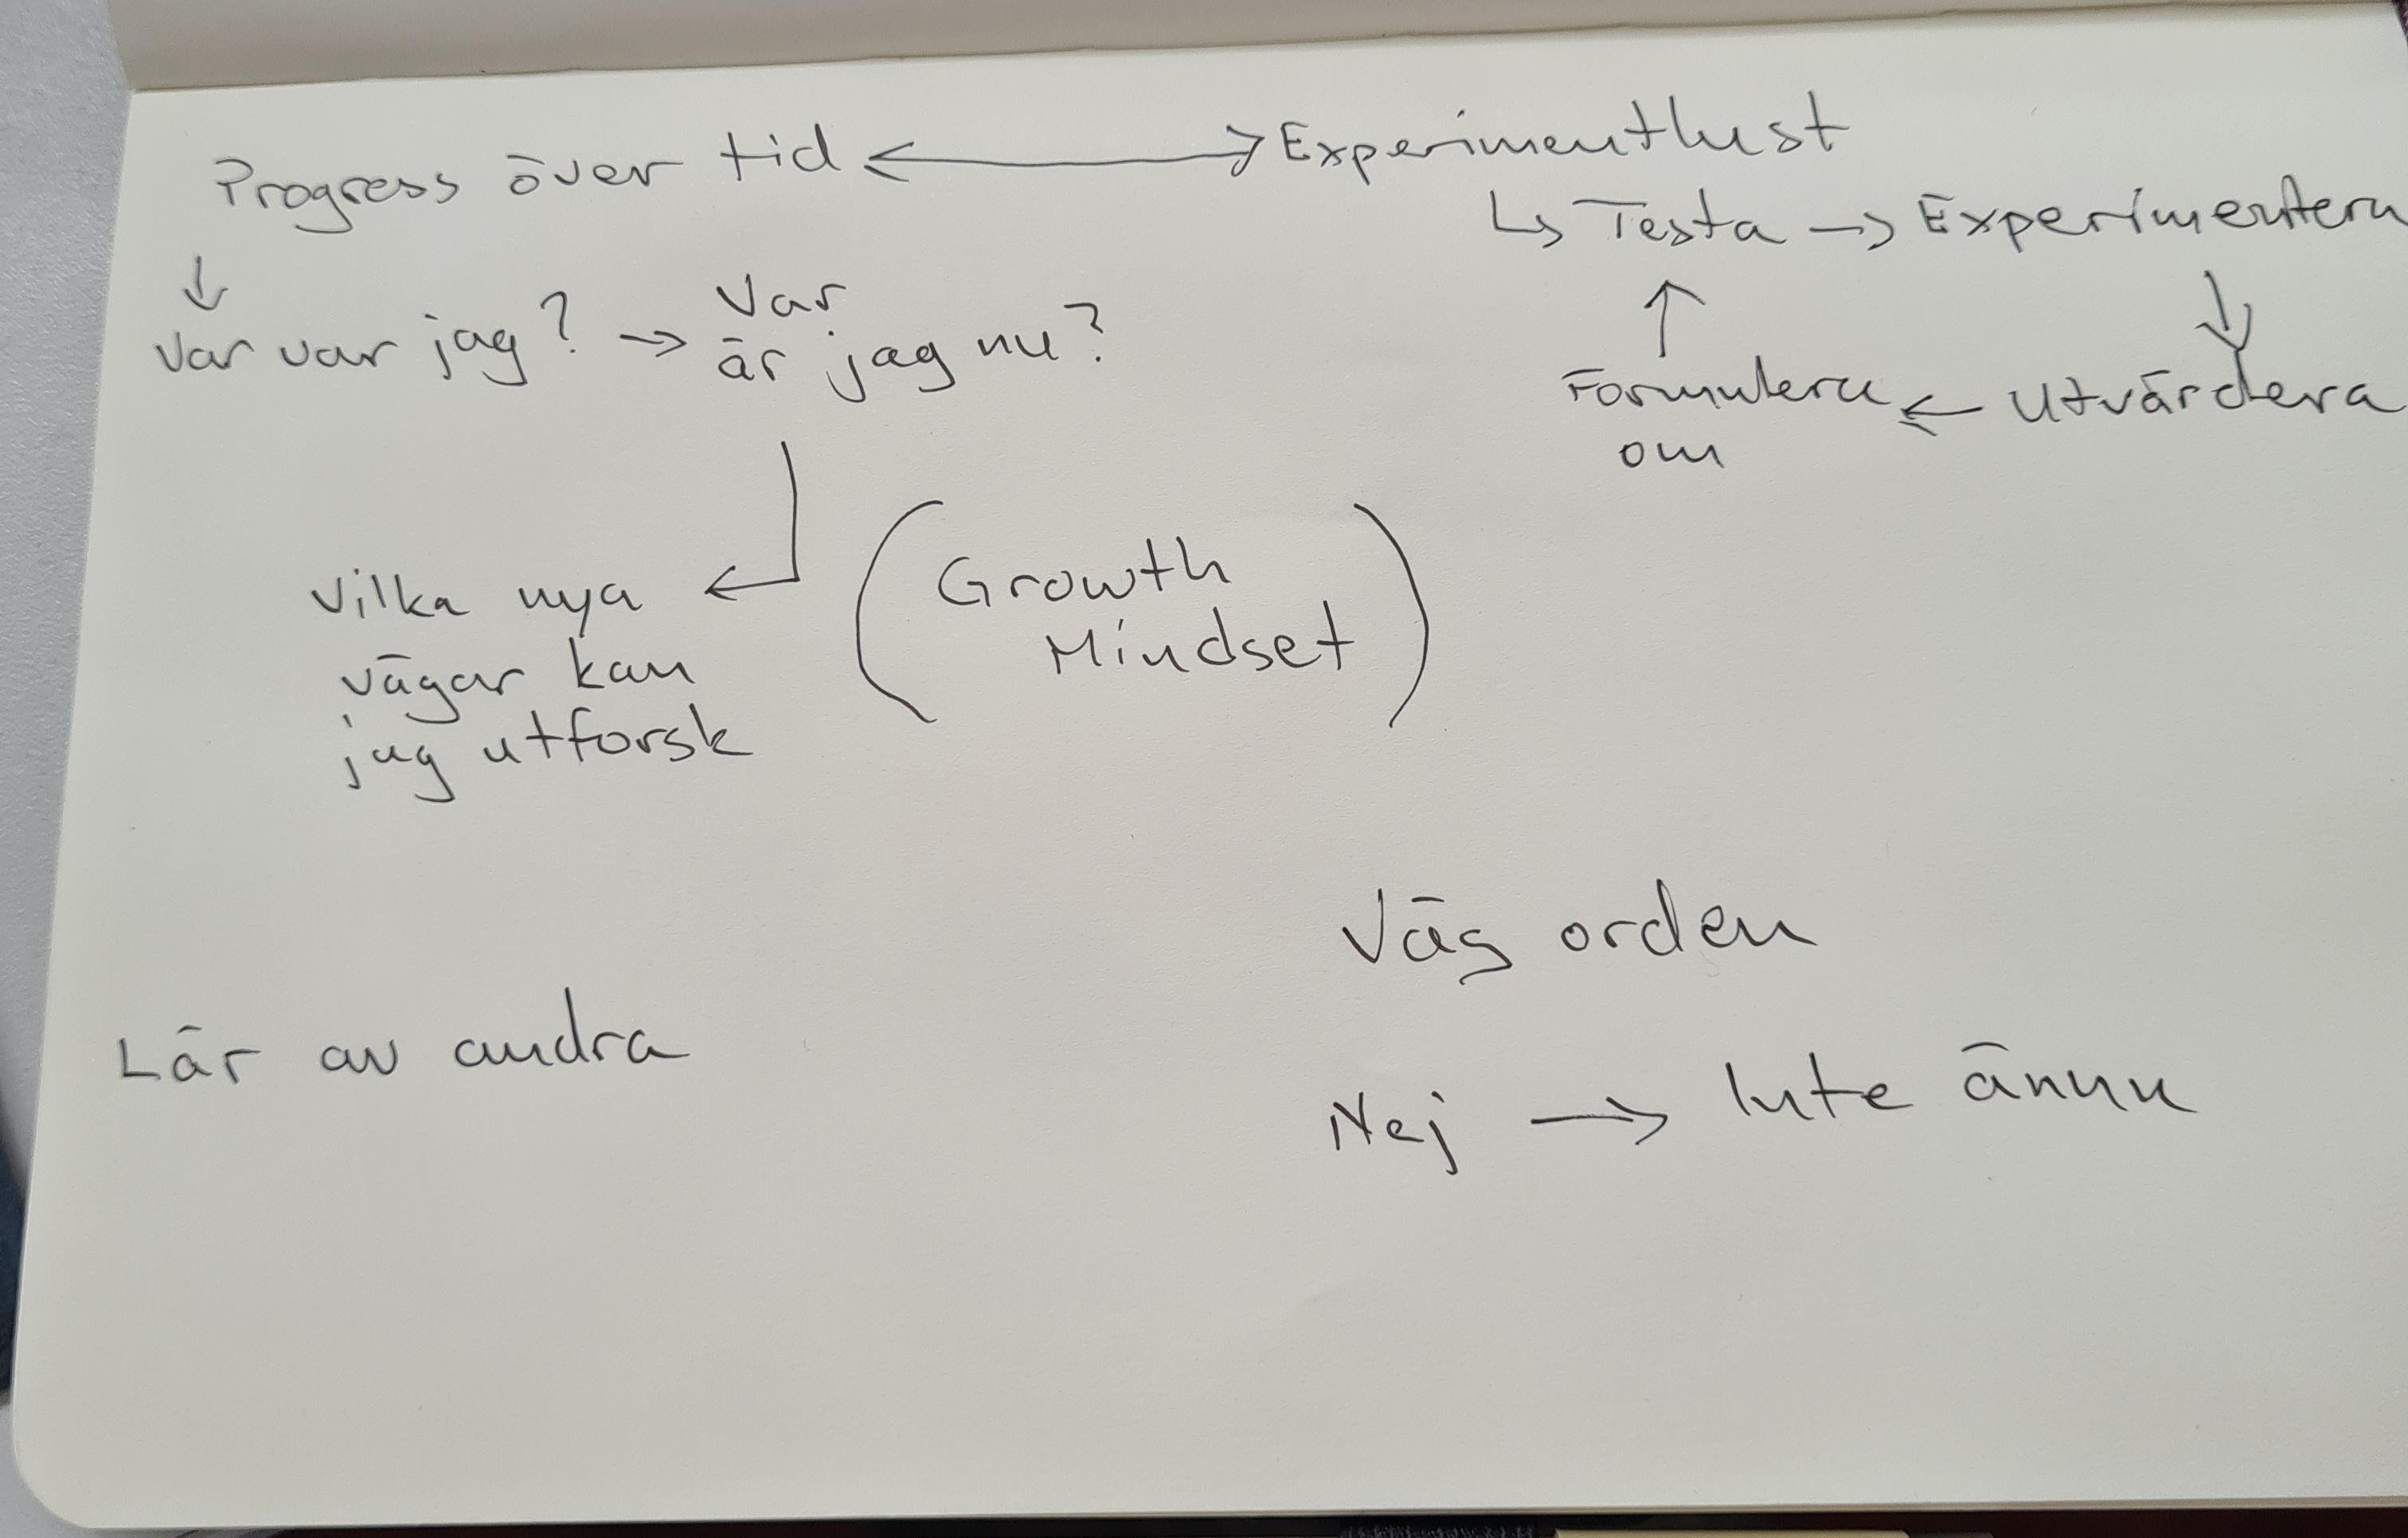 Progress över tid ←→ Experimentlust
↳ Testa → Experimentera
↓
Var var jag? → Var
är jag nu?
↑
↓
Formulera ← Utvärdera
om
Vilka nya ←
vägar kan
jag utforsk
(Growth
Mindset)
Väg orden
Lär av andra
Nej → Inte ännu